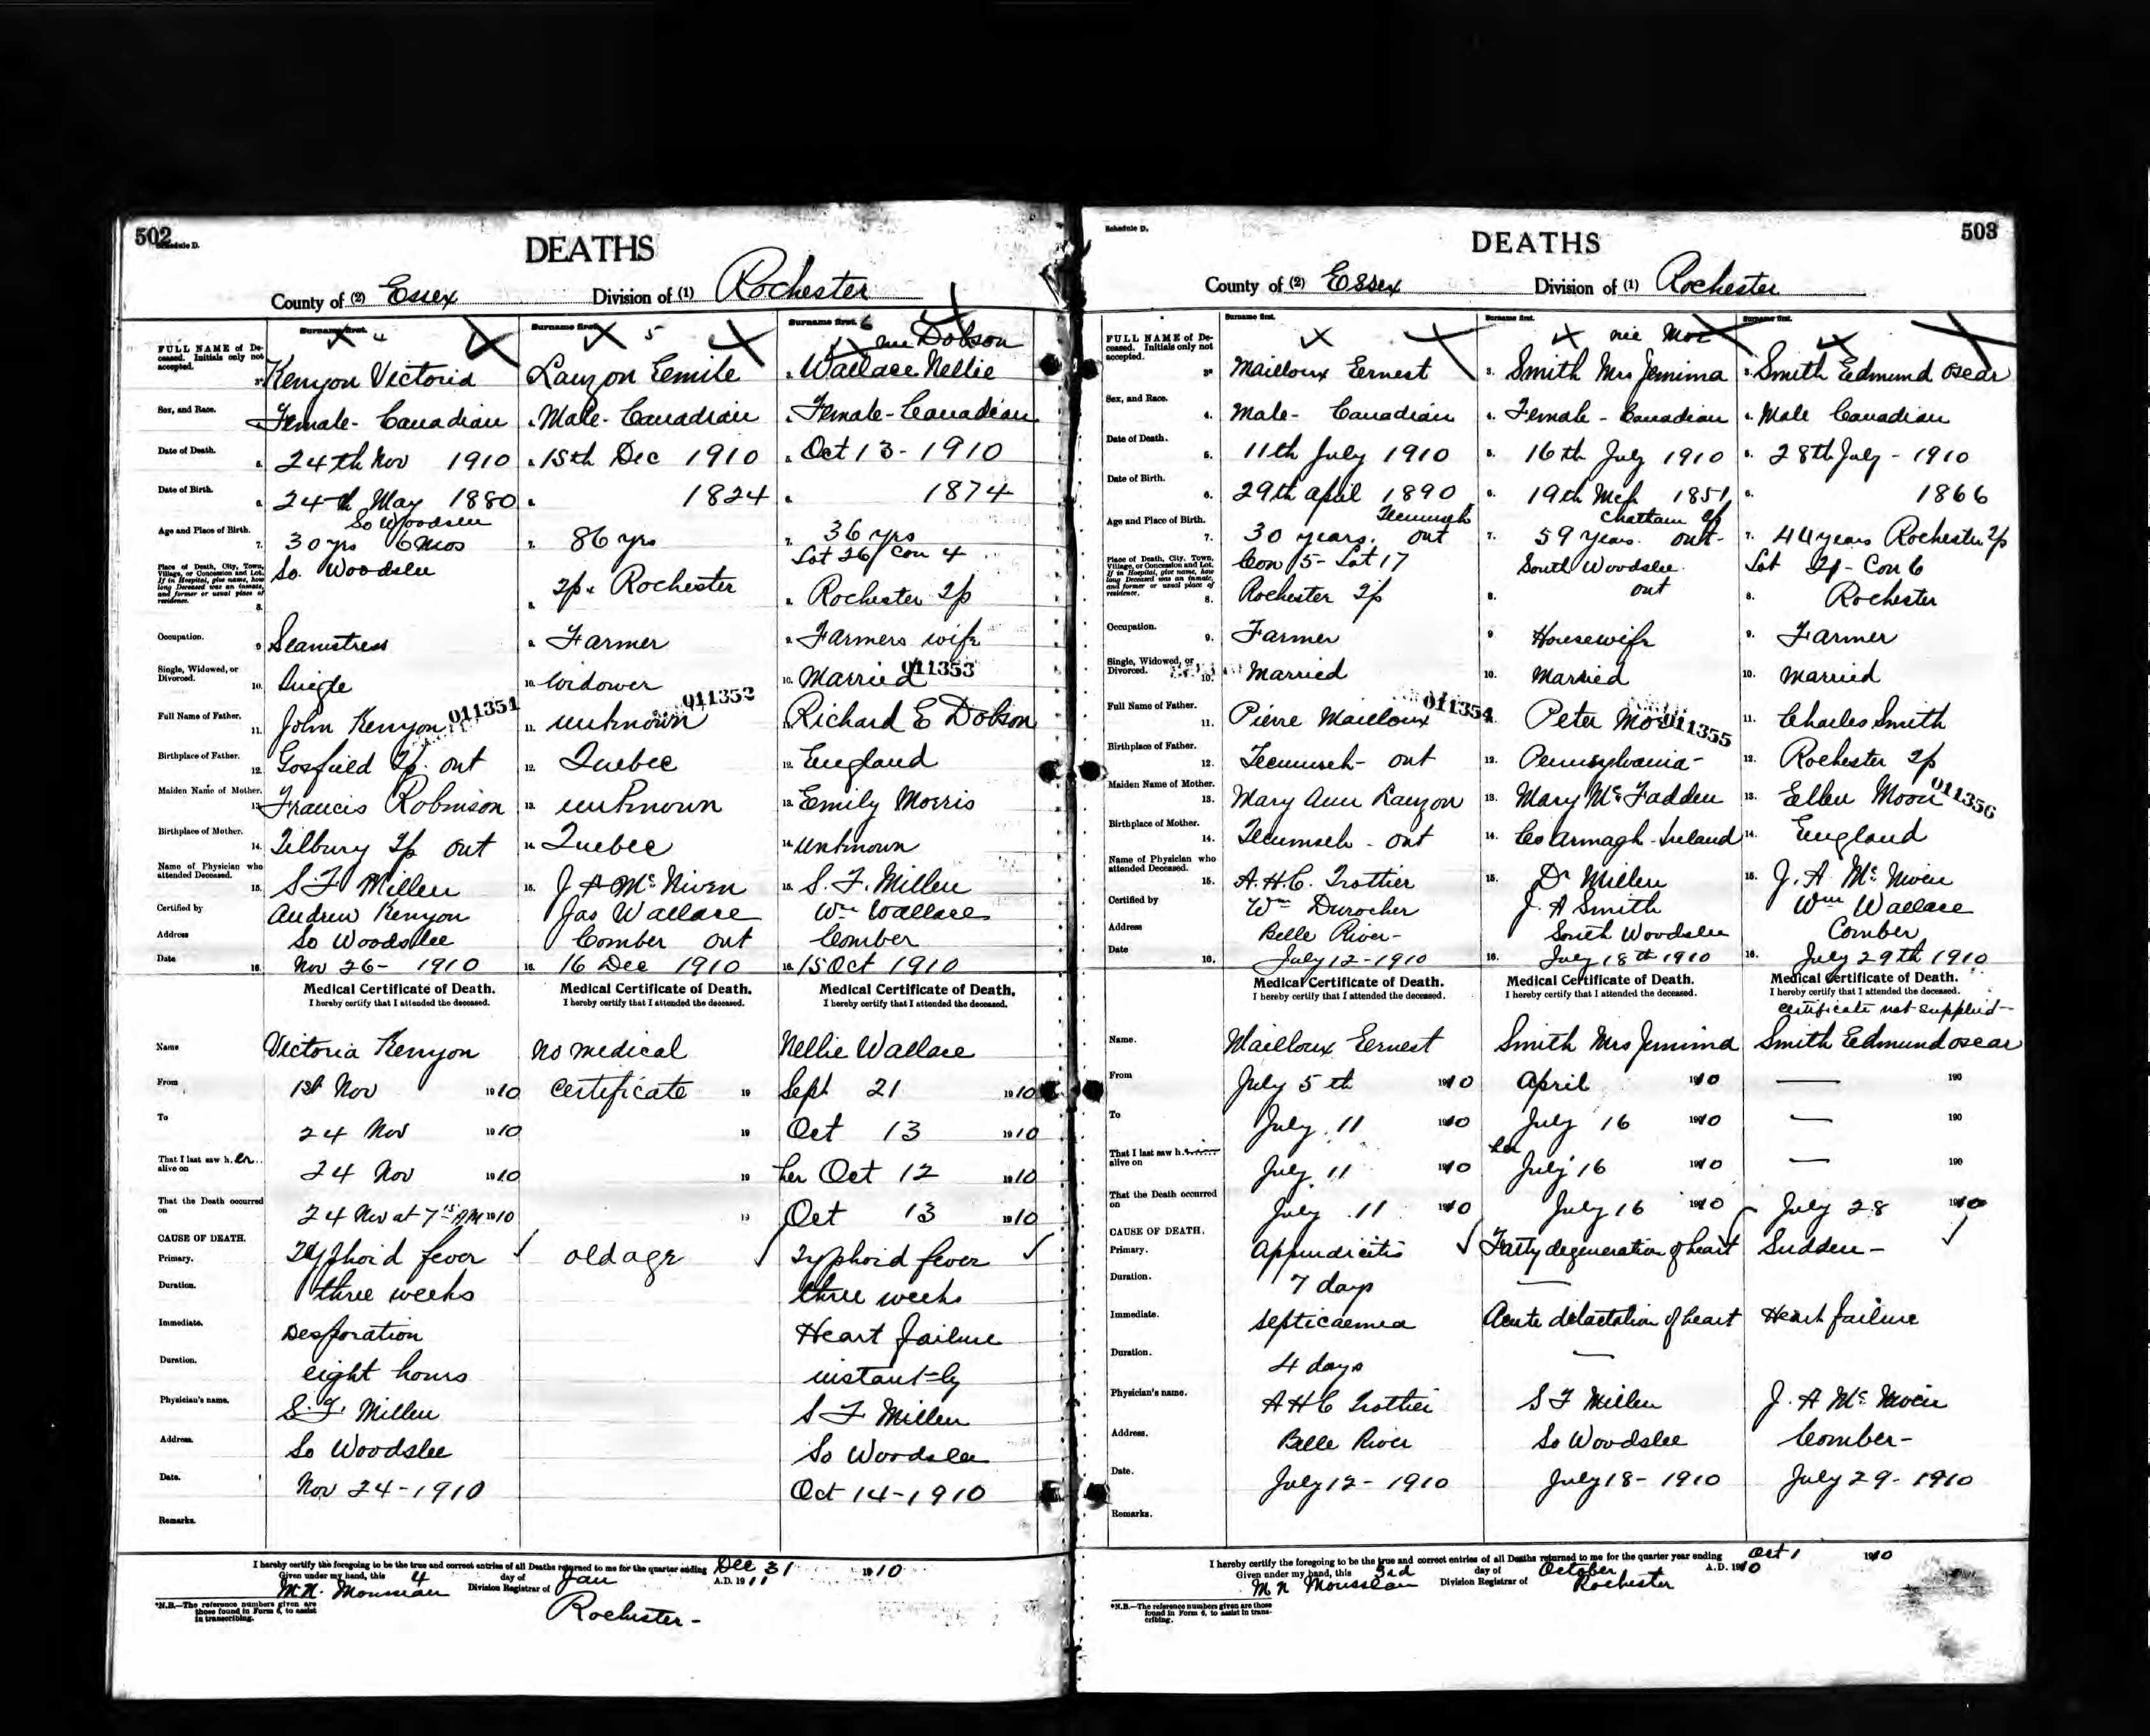 502
Schedule D.
DEATHS
County of (2) Essex Division of (1) Rochester
Surname first. 4 Surname first. 5 Surname first. 6
FULL NAME of Deceased. Initials only not accepted.
née Dobson
3. Kenyon Victoria Lauzon Eemile 3. Wallace Nellie
Sex, and Race. 4. Female - Canadian 4. Male - Canadian 4. Female - Canadian
Date of Death. 5. 24th Nov 1910 5. 15th Dec 1910 5. Oct 13 - 1910
Date of Birth. 6. 24th May 1880 6. 1824 6. 1874
So Woodslee
Age and Place of Birth. 7. 30 yrs 6 Mos 7. 86 yrs 7. 36 yrs
Place of Death, City, Town, Village, or Concession and Lot. If in Hospital, give name, how long Deceased was an inmate, and former or usual place of residence.
So. Woodslee Lot 26 Con 4
8. 8. Tp. Rochester 8. Rochester Tp
Occupation. 9 Seamstress 9. Farmer 9. Farmers wife
Single, Widowed, or Divorced. 10. Single 10. Widower 10. Married
011351 011352 011353
Full Name of Father. 11. John Kenyon 11. unknown 11. Richard E Dobson
Birthplace of Father. 12. Gosfield Tp. ont 12. Quebec 12. England
Maiden Name of Mother. 13. Francis Robinson 13. unknown 13. Emily Morris
Birthplace of Mother. 14. Tilbury Tp ont 14. Quebec 14. Unknown
Name of Physician who attended Deceased. 15. S. F. Millen 15. J A McNiven 15. S. F. Millen
Certified by Andrew Kenyon Jas Wallace Wm Wallace
Address So Woodslee Comber ont Comber
Date 16. Nov 26 - 1910 16. 16 Dec 1910 16. 15 Oct 1910
Medical Certificate of Death. Medical Certificate of Death. Medical Certificate of Death.
I hereby certify that I attended the deceased. I hereby certify that I attended the deceased. I hereby certify that I attended the deceased.
Name Victoria Kenyon no medical Nellie Wallace
From 1st Nov 1910 certificate 19 Sept 21 1910
To 24 Nov 1910 19 Oct 13 1910
That I last saw h.er.. alive on 24 Nov 1910 19 her Oct 12 1910
That the Death occurred on 24 Nov at 7 15 AM 1910 19 Oct 13 1910
CAUSE OF DEATH.
Primary. Typhoid fever old age Typhoid fever
Duration. three weeks three weeks
Immediate. Desporation Heart failure
Duration. eight hours instant-ly
Physician's name. S. F. Millen S F Millen
Address. So Woodslee So Woodslee
Date. Nov 24 - 1910 Oct 14 - 1910
Remarks.
I hereby certify the foregoing to be the true and correct entries of all Deaths returned to me for the quarter ending Dec 31 1910
Given under my hand, this 4 day of Jan A.D. 1911
M. N. Mousseau Division Registrar of Rochester -
*N.B.—The reference numbers given are those found in Form 6, to assist in transcribing.
Schedule D.
503
DEATHS
County of (2) Essex Division of (1) Rochester
Surname first. Surname first. Surname first.
FULL NAME of Deceased. Initials only not accepted.
3. Mailloux Ernest 3. Smith Mrs Jemima 3. Smith Edmund Oscar
Sex, and Race. 4. Male - Canadian 4. Female - Canadian 4. Male Canadian
Date of Death. 5. 11th July 1910 5. 16th July 1910 5. 28th July - 1910
Date of Birth. 6. 29th April 1890 6. 19th Mch 1851 6. 1866
Tecumseh Chatham Tp
Age and Place of Birth. 7. 30 years. ont 7. 59 Years. ont - 7. 44 years Rochester Tp
Place of Death, City, Town, Village, or Concession and Lot. If in Hospital, give name, how long Deceased was an inmate, and former or usual place of residence.
Con 5 - Lot 17 South Woodslee. Lot 21 - Con 6
8. Rochester Tp 8. ont 8. Rochester
Occupation. 9. Farmer 9 Housewife 9. Farmer
Single, Widowed, or Divorced. 10. Married 10. Married 10. Married
011354 011355
Full Name of Father. 11. Pierre Mailloux Peter 11. Charles Smith
Birthplace of Father. 12. Tecumseh - ont 12. Pennsylvania - 12. Rochester Tp
Maiden Name of Mother. 13. Mary Ann Lauzon 13. Mary McFadden 13. Ellen Moon 011356
Birthplace of Mother. 14. Tecumseh - ont 14. Co Armagh - Ireland 14. England
Name of Physician who attended Deceased. 15. A. H. C. Trottier 15. Dr Millen 15. J. A McNiven
Certified by Wm Durocher J. A Smith Wm Wallace
Address Belle River - South Woodslee Comber
Date 16. July 12 - 1910 16. July 18th 1910 16. July 29th 1910
Medical Certificate of Death. Medical Certificate of Death. Medical Certificate of Death.
I hereby certify that I attended the deceased. I hereby certify that I attended the deceased. I hereby certify that I attended the deceased.
certificate not supplied -
Name. Mailloux Ernest Smith Mrs Jemima Smith Edmund Oscar
From July 5th 1910 April 1910 — 190
To July 11 1910 July 16 1910 — 190
her
That I last saw h. alive on July 11 1910 July 16 1910 — 190
That the Death occurred on July 11 1910 July 16 1910 July 28 1910
CAUSE OF DEATH.
Primary. Appendicitis Fatty degeneration of heart Sudden -
Duration. 7 days —
Immediate. septicaemea Acute delactation of heart Heart failure
Duration. 4 days —
Physician's name. A H C Trottier S F Millen J. A McNiven
Address. Belle River So Woodslee Comber -
Date. July 12 - 1910 July 18 - 1910 July 29 - 1910
Remarks.
I hereby certify the foregoing to be the true and correct entries of all Deaths returned to me for the quarter year ending Oct 1 1910
Given under my hand, this 3rd day of October A.D. 1910
M N Mousseau Division Registrar of Rochester
*N.B.—The reference numbers given are those found in Form 6, to assist in transcribing.